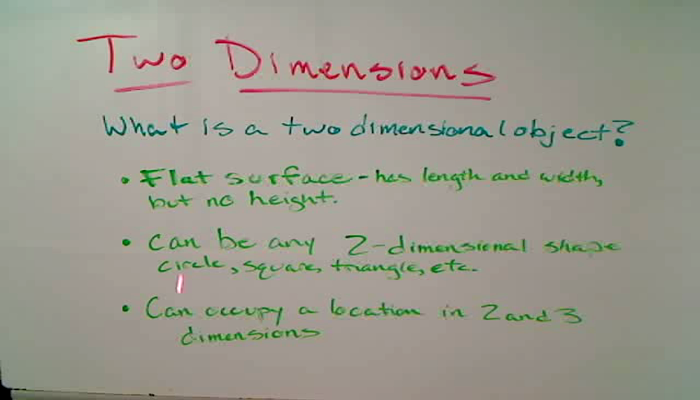 Two Dimensions
What is a two dimensional object?
• Flat surface - has length and width,
but no height.
• Can be any 2-dimensional shape
circle, square, triangle, etc.
• Can occupy a location in 2 and 3
dimensions